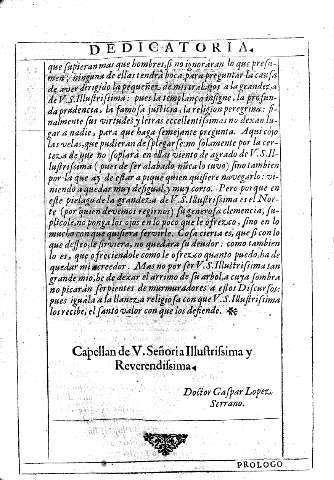 DEDICATORIA.
que supieran mas que hombres, si no ignoraran lo que presu-
men; ninguna de ellas tendrà boca para preguntar la causa
de aver dirigido la pequeñez de mis trabajos a la grandeza
de V.S. Illustrissima: pues la templança insigne, la profun-
da prudencia, la famosa justicia, la religion peregrina: fi-
nalmente sus virtudes y letras excellentissimas no dexan lu-
gar a nadie, para que haga semejante pregunta. Aqui cojo
las velas, que pudieran desplegarse: no solamente por la cer-
teza de que no soplarà en ellas viento de agrado de V.S. Il-
lustrissima (pues de ser alabado nũca lo tuvo) sino tambien
por lo que ay de estar a pique quien quisiere navegarlo: vi-
niendo a quedar muy desigual y muy corto. Pero porque en
este pielago de la grandeza de V.S. Illustrissima es el Nor-
te (por quien devemos regirnos) su generosa clemencia, su-
plicole, no ponga los ojos en lo poco que le ofrezco, sino en lo
mucho con que quisiera servirle. Cosa cierta es, que si con lo
que desseo le sirviera, no quedara su deudor: como tambien
lo es, que ofreciendole como le ofrezco quanto puedo, ha de
quedar mi acreedor. Mas no por ser V.S. Illustrissima tan
grande mio, he de dexar el arrimo de su arbol, a cuya sombra
no picarán serpientes de murmuradores a estos Discursos:
pues iguala a la llaneza religiosa con que V.S. Illustrissima
los recibe, el santo valor con que los defiende.
Capellan de V. Señoria Illustrissima y
Reverendissima.
Doctor Gaspar Lopez
Serrano.
PROLOGO